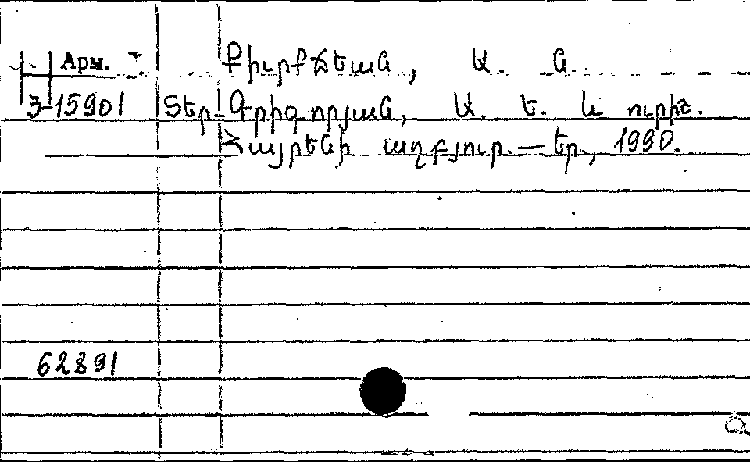 Арм.
Քիւրքճեան, Ա. Ն.
3-15901 Տեր-Գրիգորյան, Ա. Ե. և ուրիշ.
Հայրենի աղբյուր. — Եր., 1990.
62891